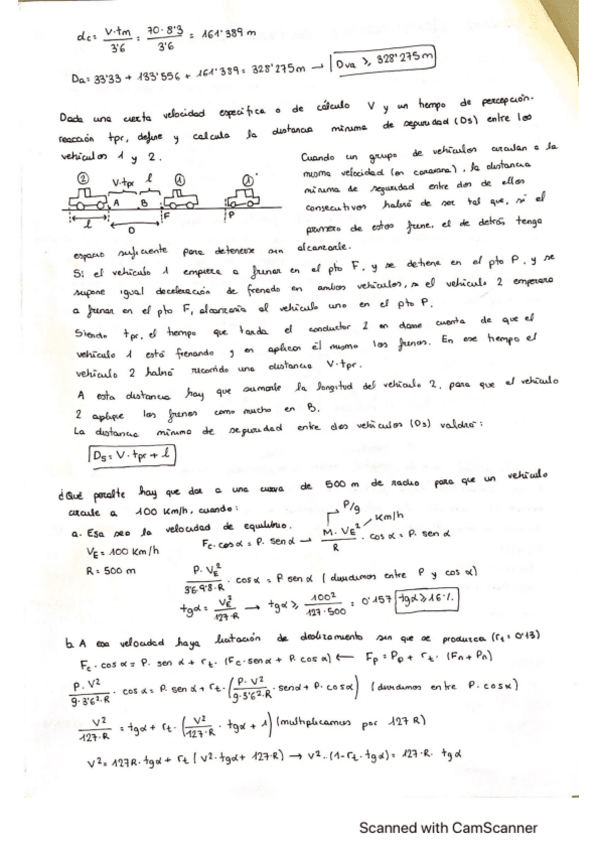 dc = V·tm / 3'6 = 70·8'3 / 3'6 = 161'389 m
Da = 33'33 + 133'556 + 161'389 = 328'275 m → Dva ≥ 328'275 m
Dada una cierta velocidad específica o de cálculo V y un tiempo de percepción-
reacción tpr, define y calcula la distancia mínima de seguridad (Ds) entre los
vehículos 1 y 2.
② V·tpr l ① ①
A B F P
l D
Cuando un grupo de vehículos circulan a la
misma velocidad (en caravana), la distancia
mínima de seguridad entre dos de ellos
consecutivos habrá de ser tal que, si el
primero de estos frena, el de detrás tenga
espacio suficiente para detenerse sin alcanzarle.
Si el vehículo 1 empieza a frenar en el pto F, y se detiene en el pto P, y se
supone igual deceleración de frenado en ambos vehículos, si el vehículo 2 empezara
a frenar en el pto F, alcanzaría al vehículo uno en el pto P.
Siendo tpr, el tiempo que tarda el conductor 2 en darse cuenta de que el
vehículo 1 está frenando y en aplicar él mismo los frenos. En ese tiempo el
vehículo 2 habrá recorrido una distancia V·tpr.
A esta distancia hay que sumarle la longitud del vehículo 2, para que el vehículo
2 aplique los frenos como mucho en B.
La distancia mínima de seguridad entre dos vehículos (Ds) valdrá:
Ds = V·tpr + l
¿Qué peralte hay que dar a una curva de 500 m de radio para que un vehículo
circule a 100 Km/h, cuando:
a. Esa sea la velocidad de equilibrio.
P/g Km/h
VE = 100 Km/h Fc·cos α = P·sen α → M·VE² / R · cos α = P·sen α
R = 500 m
P·VE² / 3'6·9'8·R · cos α = P sen α (dividimos entre P y cos α)
tg α = VE² / 127·R → tg α ≥ 100² / 127·500 = 0'157 tg α ≥ 16%
b. A esa velocidad haya limitación de deslizamiento sin que se produzca (rt = 0'13)
Fc·cos α = P·sen α + rt·(Fc·sen α + P·cos α) ← Fp = Pp + rt·(Fn + Pn)
P·V² / 9·3'6²·R · cos α = P·sen α + rt·(P·V² / 9·3'6²·R · sen α + P·cos α) (dividimos entre P·cos α)
V² / 127·R = tg α + rt·(V² / 127·R · tg α + 1) (multiplicamos por 127 R)
V² = 127R·tg α + rt (V²·tg α + 127·R) → V²·(1 - rt·tg α) = 127·R·tg α
Scanned with CamScanner